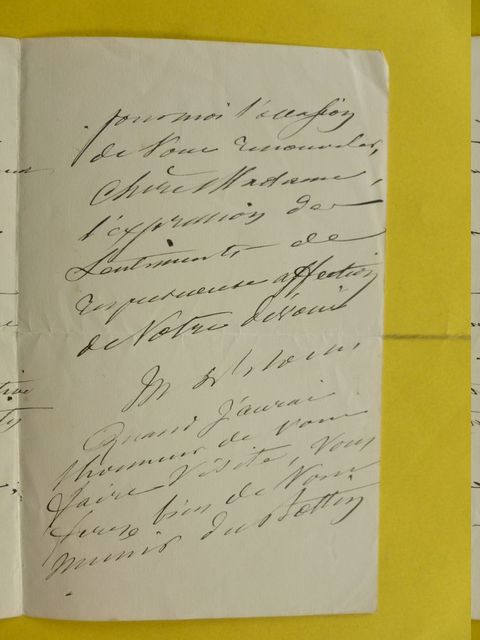 pour moi l'occasion
de Vous renouveler,
Chère Madame,
l'expression des
Sentiments de
respectueuse affection
de Votre dévoué
M
Quand j'aurai
l'honneur de vous
faire visite, Vous
ferez bien de Vous
munir du Bottin